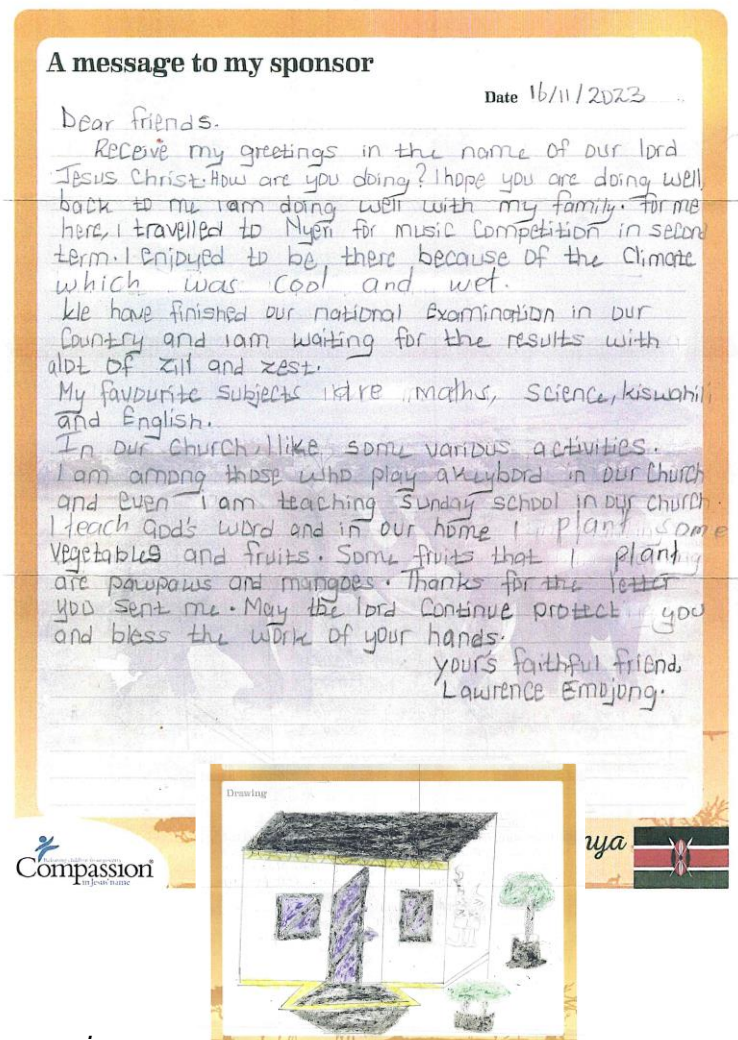 A message to my sponsor
Date 16/11/2023
Dear friends.
Receive my greetings in the name of our lord
Jesus Christ. How are you doing? I hope you are doing well,
back to me iam doing well with my family. For me
here, i travelled to Nyeri for music Competition in second
term. I Enjoyed to be there because of the Climate
which was cool and wet.
We have finished our national Examination in our
Country and iam waiting for the results with
alot of zill and zest.
My favourite subjects are maths, Science, kiswahili
and English.
In our church, I like some various activities.
I am among those who play akeybord in our Church
and even I am teaching Sunday school in our church.
I teach God's word and in our home I plant some
vegetables and fruits. Some fruits that I plant
are pawpaws and mangoes. Thanks for the letter
you sent me. May the lord Continue protect you
and bless the work of your hands.
yours faithful friend,
Lawrence Emojong.
Drawing
Compassion
in Jesus' name
nya